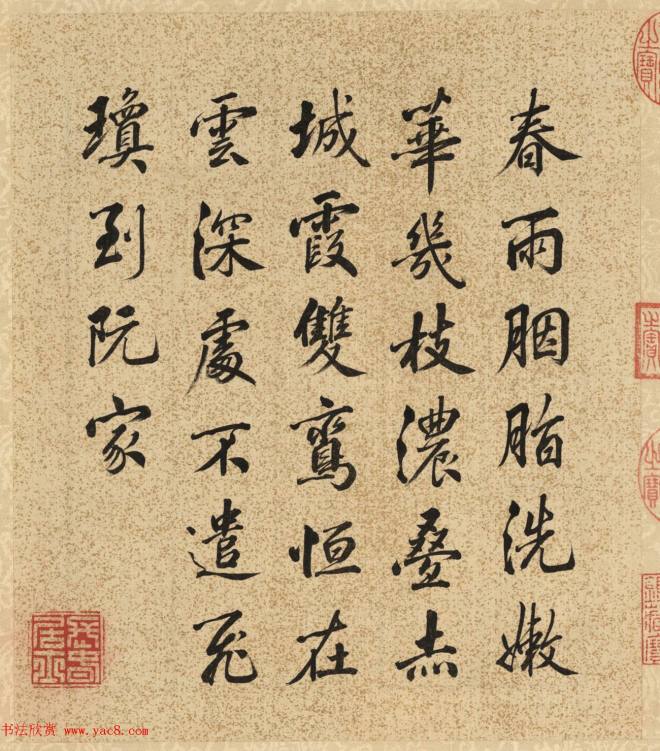 春雨胭脂洗嫩
華幾枝濃疊赤
城霞雙鸞恒在
雲深處不遣飛
瓊到阮家
書法欣赏 www.yac8.com